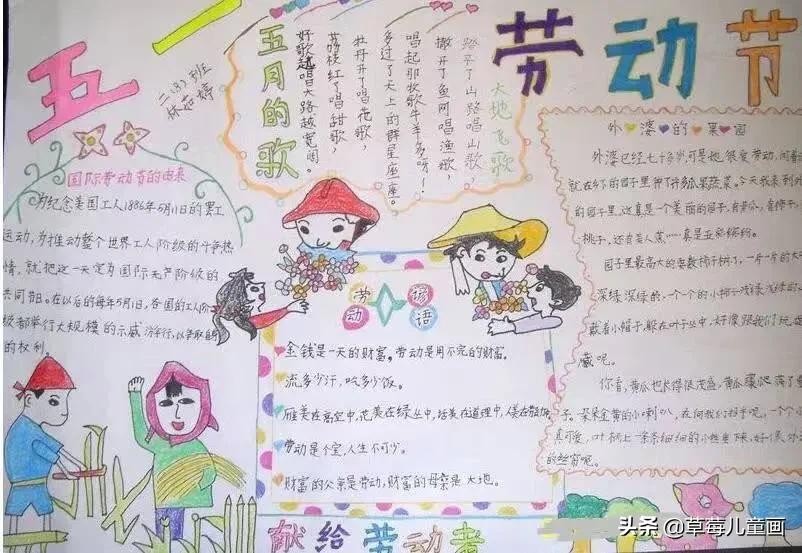 五一
劳动节
二(8)班
林如婷
五月的歌
大地飞歌
踏平了山路唱山歌,
撒开了鱼网唱渔歌,
唱起那牧歌牛羊多呀!
多过了天上的群星座座。
牡丹开了唱花歌,
荔枝红了唱甜歌,
好歌越唱大路越宽阔。
国际劳动节的由来
为纪念美国工人1886年5月1日的罢工
运动,为推动整个世界工人阶级的斗争热
情,就把这一天定为国际无产阶级的
共同节日。在以后的每年5月1日,各国的工人阶
级都举行大规模的示威游行,以争取自
的权利
劳动谚语
金钱是一天的财富。劳动是用不完的财富。
流多少汗,吃多少饭。
雁美在高空中,花美在绿丛中,话美在道理中,人美在
劳动是个宝,人生不可少。
财富的父亲是劳动,财富的母亲是大地。
献给劳动者
外婆的果园
外婆已经七十多岁,可是她很爱劳动,
就在乡下的园子里种了许多瓜果蔬菜。今天我来到外
的园子里,这真是一个美丽的园子,有黄瓜,有
桃子,还有美人蕉……真是五彩缤纷。
园子里最高大的要数柿子树了,一片一片的大
深绿深绿的,一个个的小柿子浅绿浅绿的
戴着小帽子,躲在叶子丛中,好像跟我们玩
藏呢。
你看,黄瓜也长得很茂盛,黄瓜藤爬满了
子,一朵朵金黄的小喇叭,在向我们招手呢。一个个
真可爱,叶柄上一条条细细的小丝垂下来,好像
的丝帘呢。
头条 @草莓儿童画